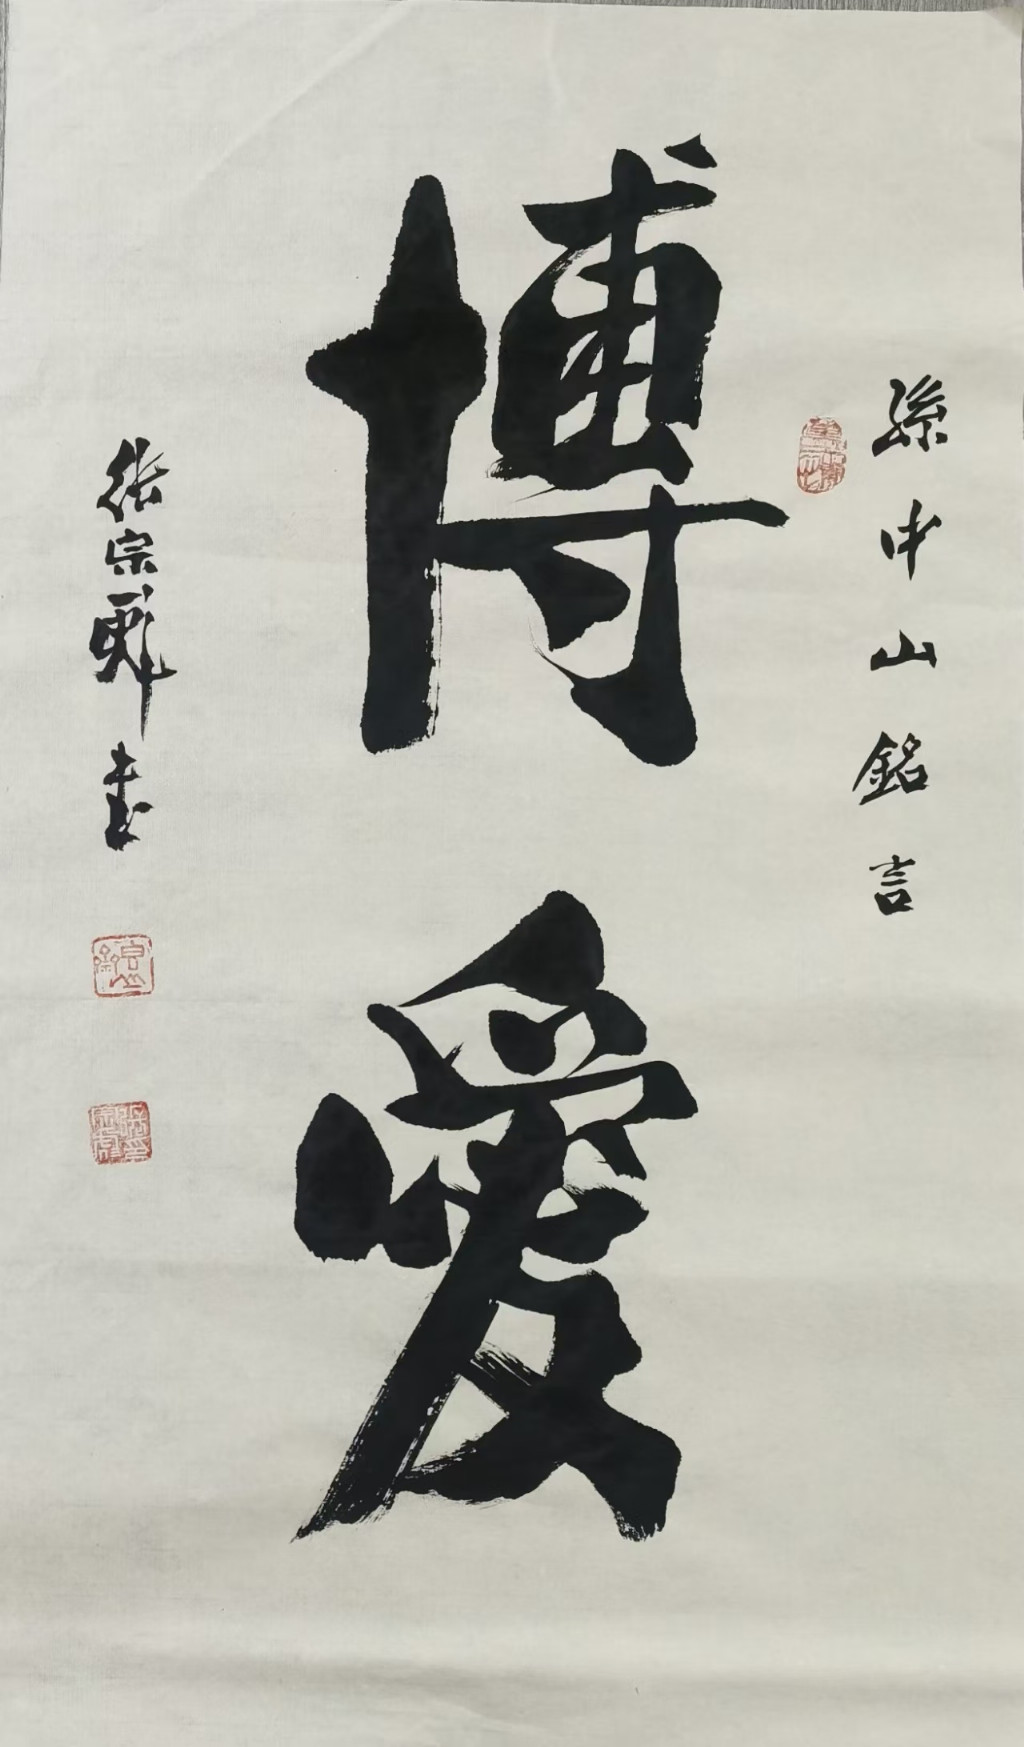 孫中山銘言
博愛
宗書